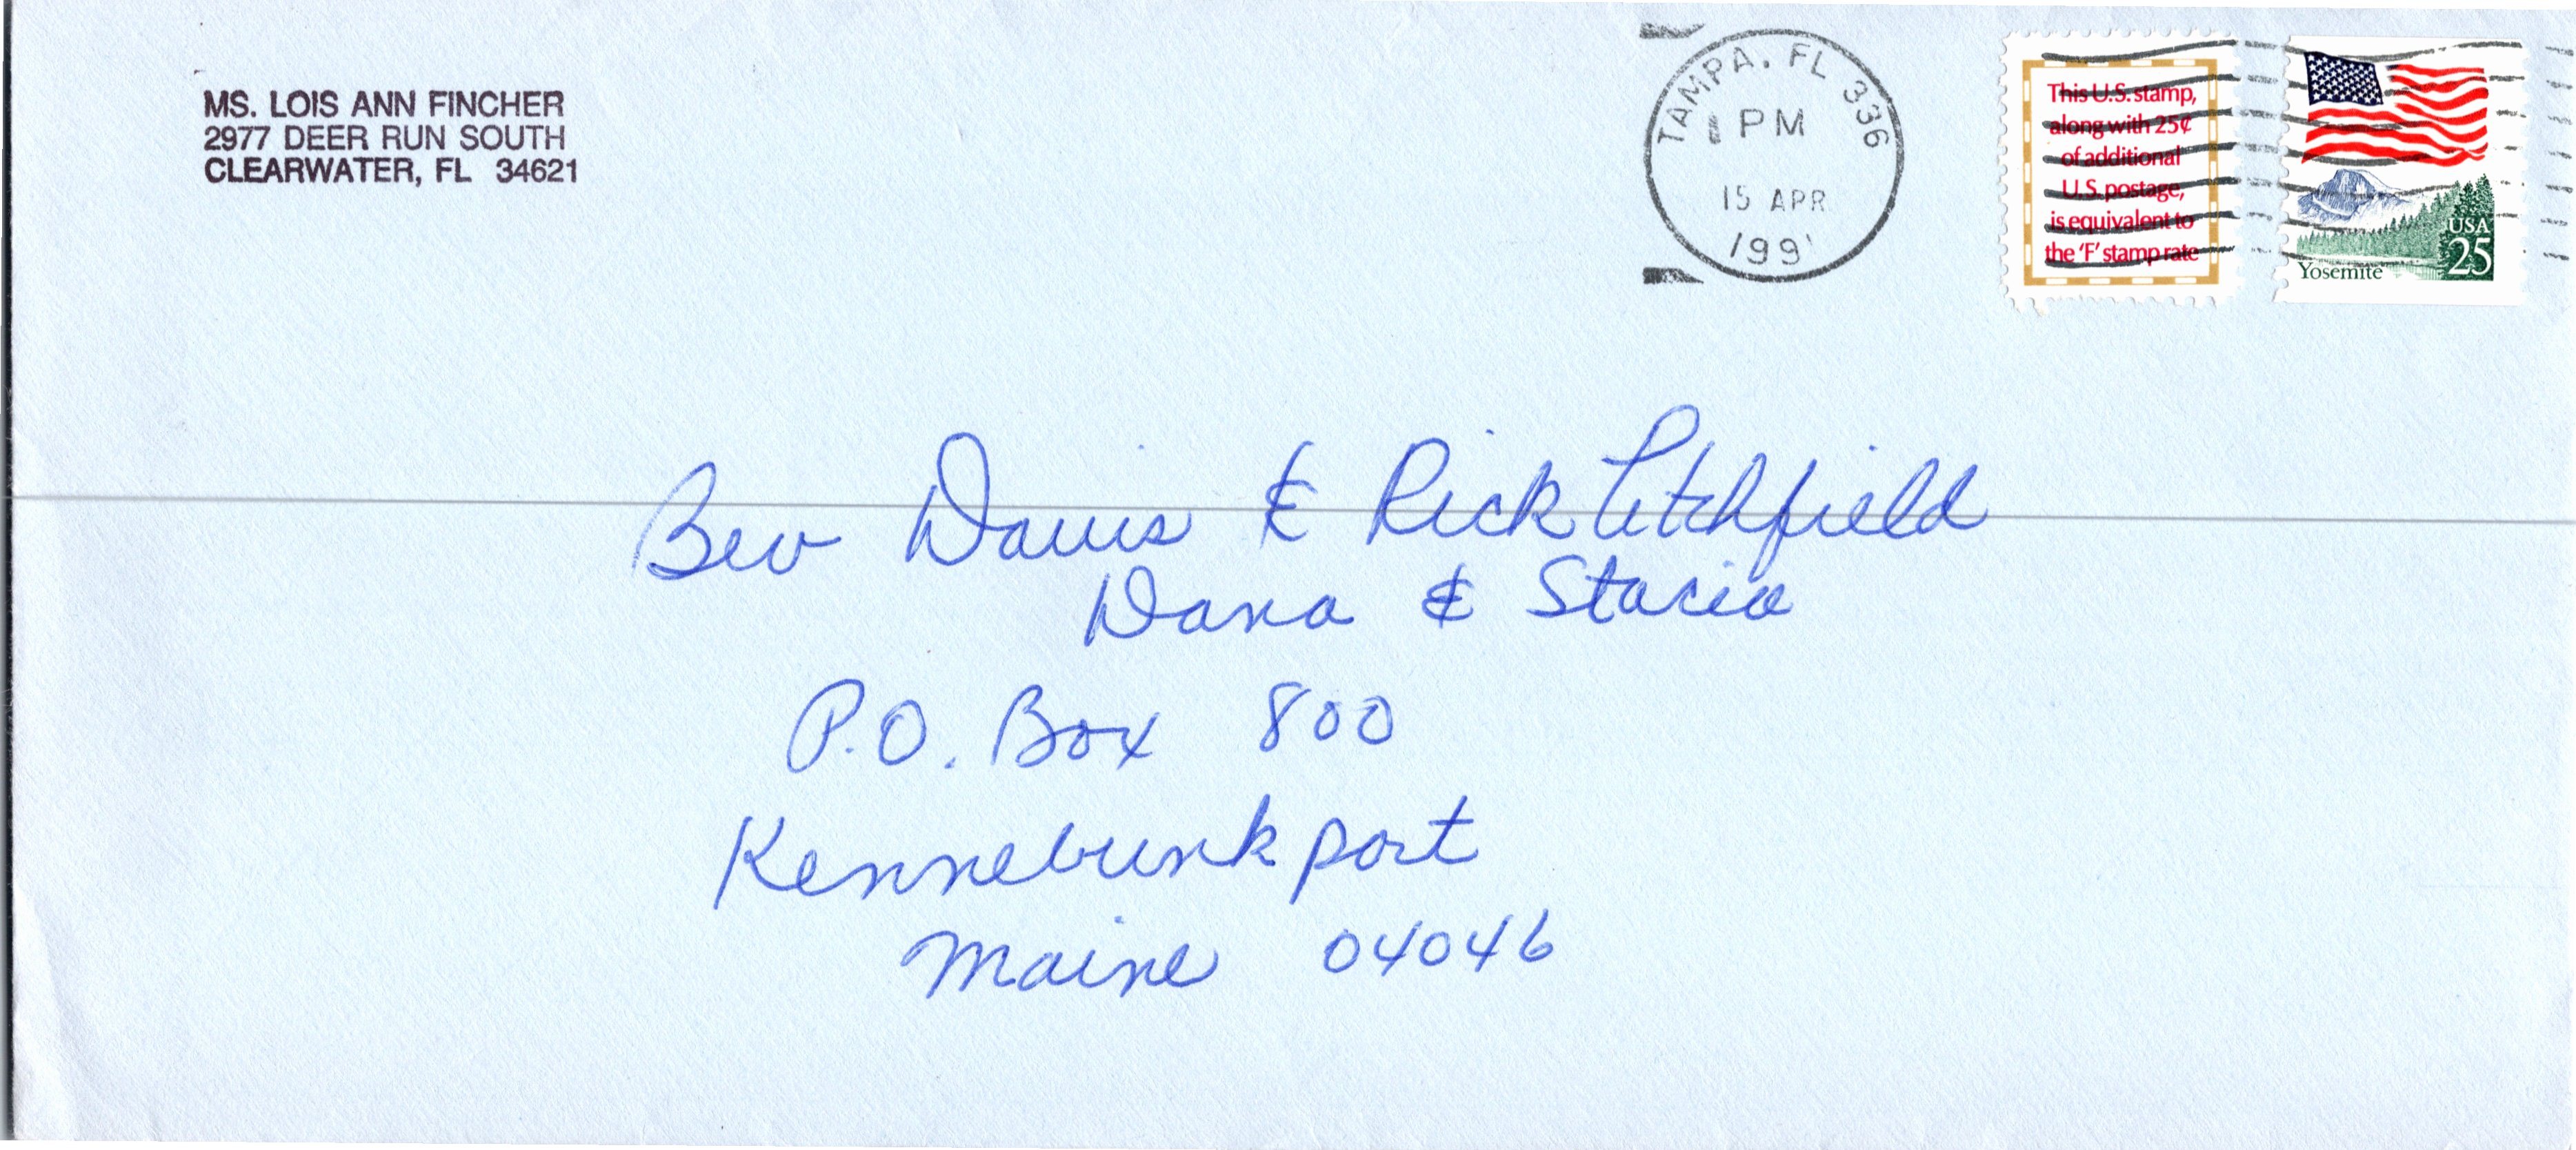 MS. LOIS ANN FINCHER
2977 DEER RUN SOUTH
CLEARWATER, FL 34621
TAMPA. FL 336
PM
15 APR
199
This U.S. stamp,
along with 25¢
of additional
U.S. postage,
is equivalent to
the 'F' stamp rate
USA
25
Yosemite
Bev Davis & Rick Litchfield
Dana & Stacia
P.O. Box 800
Kennebunkport
Maine 04046